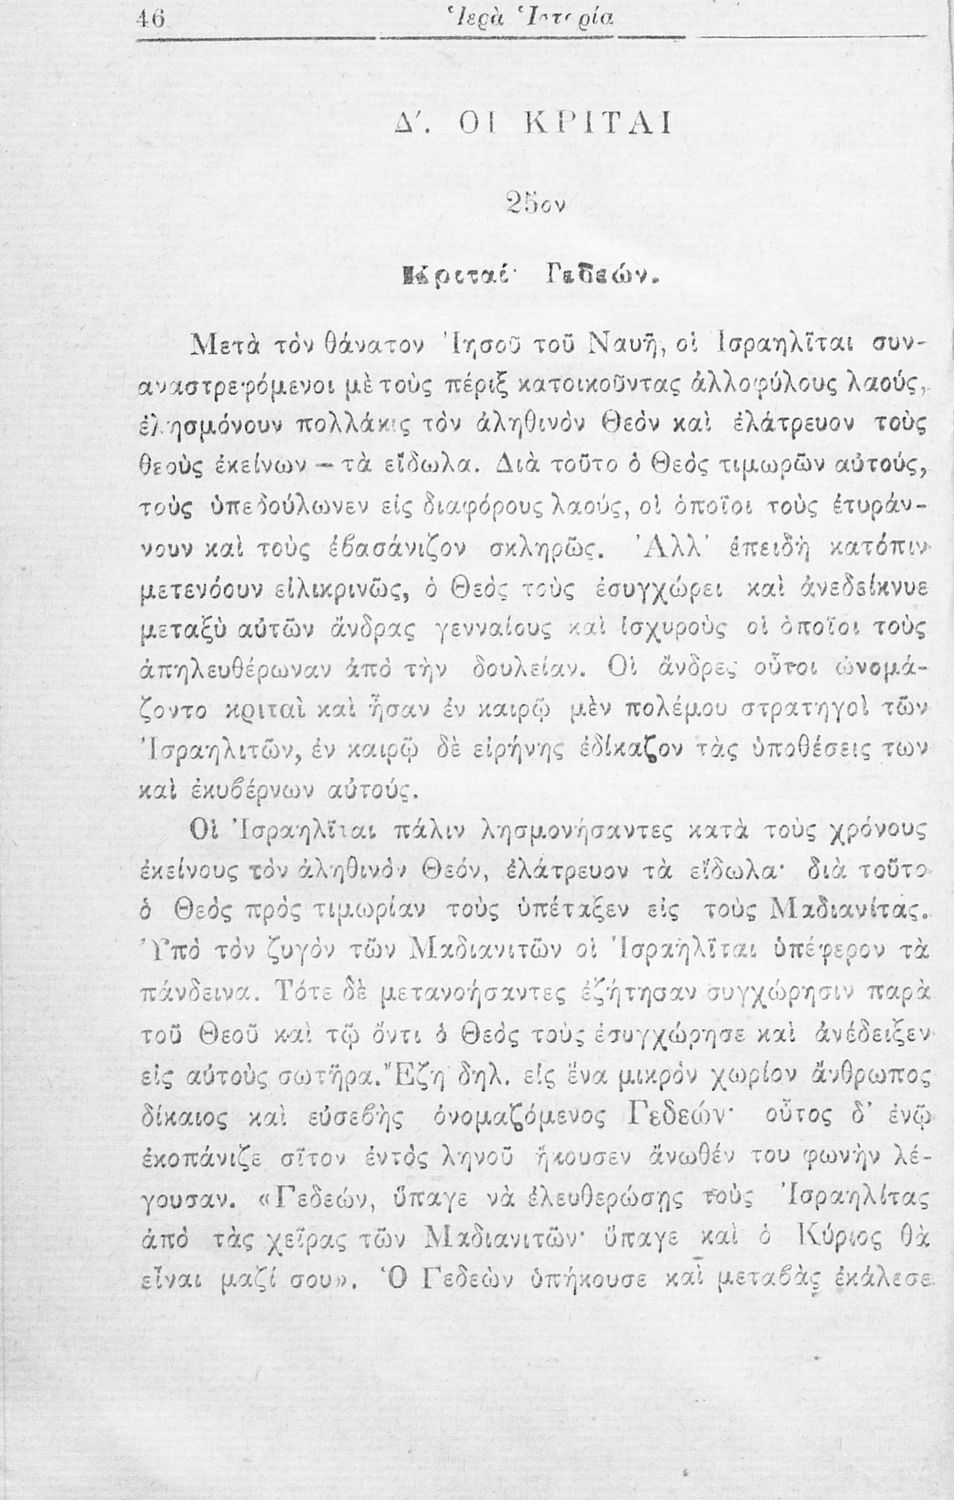 46 Ἱερὰ Ἱστορία
Δʹ. ΟΙ ΚΡΙΤΑΙ
25ον
Κριταί· Γεδεών.
Μετὰ τὸν θάνατον Ἰησοῦ τοῦ Ναυῆ, οἱ Ἰσραηλῖται συν-
αναστρεφόμενοι μὲ τοὺς πέριξ κατοικοῦντας ἀλλοφύλους λαούς,
ἐλησμόνουν πολλάκις τὸν ἀληθινὸν Θεὸν καὶ ἐλάτρευον τοὺς
θεοὺς ἐκείνων — τὰ εἴδωλα. Διὰ τοῦτο ὁ Θεὸς τιμωρῶν αὐτούς,
τοὺς ὑπεδούλωνεν εἰς διαφόρους λαούς, οἱ ὁποῖοι τοὺς ἐτυράν-
νουν καὶ τοὺς ἐβασάνιζον σκληρῶς. Ἀλλ' ἐπειδὴ κατόπιν
μετενόουν εἰλικρινῶς, ὁ Θεὸς τοὺς ἐσυγχώρει καὶ ἀνεδείκνυε
μεταξὺ αὐτῶν ἄνδρας γενναίους καὶ ἰσχυροὺς οἱ ὁποῖοι τοὺς
ἀπηλευθέρωναν ἀπὸ τὴν δουλείαν. Οἱ ἄνδρες οὗτοι ὠνομά-
ζοντο κριταὶ καὶ ἦσαν ἐν καιρῷ μὲν πολέμου στρατηγοὶ τῶν
Ἰσραηλιτῶν, ἐν καιρῷ δὲ εἰρήνης ἐδίκαζον τὰς ὑποθέσεις των
καὶ ἐκυβέρνων αὐτούς.
Οἱ Ἰσραηλῖται πάλιν λησμονήσαντες κατὰ τοὺς χρόνους
ἐκείνους τὸν ἀληθινὸν Θεόν, ἐλάτρευον τὰ εἴδωλα· διὰ τοῦτο
ὁ Θεὸς πρὸς τιμωρίαν τοὺς ὑπέταξεν εἰς τοὺς Μαδιανίτας.
Ὑπὸ τὸν ζυγὸν τῶν Μαδιανιτῶν οἱ Ἰσραηλῖται ὑπέφερον τὰ
πάνδεινα. Τότε δὲ μετανοήσαντες ἐζήτησαν συγχώρησιν παρὰ
τοῦ Θεοῦ καὶ τῷ ὄντι ὁ Θεὸς τοὺς ἐσυγχώρησε καὶ ἀνέδειξεν
εἰς αὐτοὺς σωτῆρα. Ἔζη δηλ. εἰς ἕνα μικρὸν χωρίον ἄνθρωπος
δίκαιος καὶ εὐσεβὴς ὀνομαζόμενος Γεδεών· οὗτος δ' ἐνῷ
ἐκοπάνιζε σῖτον ἐντὸς ληνοῦ ἤκουσεν ἄνωθέν του φωνὴν λέ-
γουσαν. «Γεδεών, ὕπαγε νὰ ἐλευθερώσῃς τοὺς Ἰσραηλίτας
ἀπὸ τὰς χεῖρας τῶν Μαδιανιτῶν· ὕπαγε καὶ ὁ Κύριος θὰ
εἶναι μαζί σου». Ὁ Γεδεὼν ὑπήκουσε καὶ μεταβὰς ἐκάλεσε